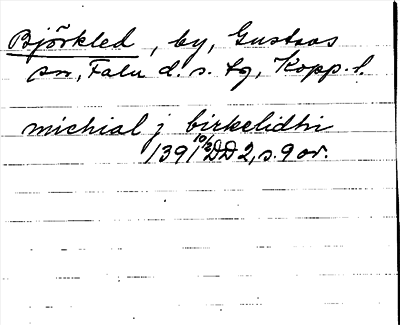 Björkled, by, Gustavs
sn, Falu d. s. tg, Kopp. l.
michial j birkelidhi
1391 10/2 DD 2, s. 9 or.